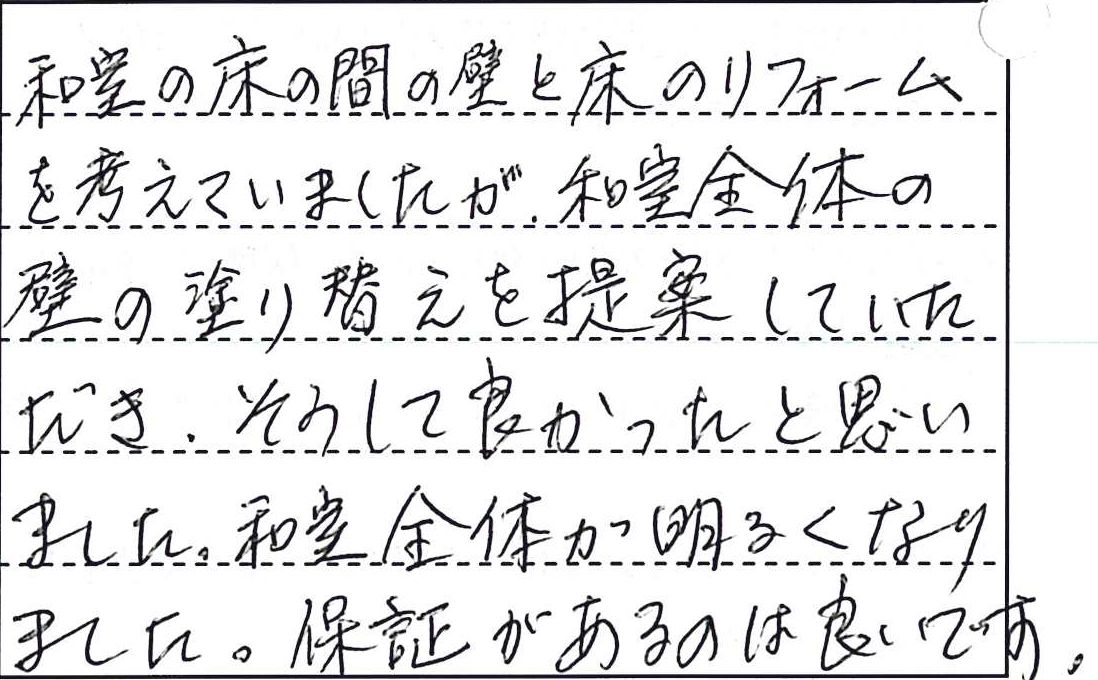 和室の床の間の壁と床のリフォーム
を考えていましたが、和室全体の
壁の塗り替えを提案していた
だき、そうして良かったと思い
ました。和室全体が明るくなり
ました。保証があるのは良いです。